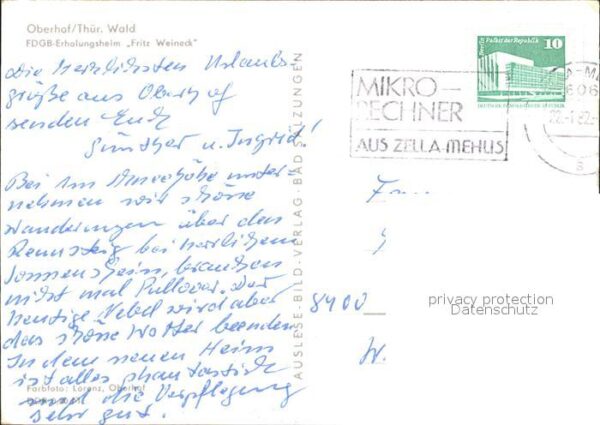 Oberhof/Thür. Wald
FDGB-Erholungsheim „Fritz Weineck"
Die herzlichsten Urlaubs-
grüße aus Oberhof
senden Euch
Günther u. Ingrid!
Bei 1m Schneehöhe unter-
nehmen wir schöne
Wanderungen über den
Rennsteig bei herrlichem
Sonnenschein, brauchen
nicht mal Pullover. Der
heutige Nebel wird aber
das schöne Wetter beenden.
In dem neuen Heim
ist alles phantastisch
und die Verpflegung
sehr gut.
Farbfoto: Lorenz, Oberhof
AUSLESE-BILD-VERLAG · BAD SALZUNGEN
Berlin, Palast der Republik
10
DEUTSCHE DEMOKRATISCHE REPUBLIK
MIKRO-
RECHNER
AUS ZELLA-MEHLIS
606
F
8400
W.
privacy protection
Datenschutz